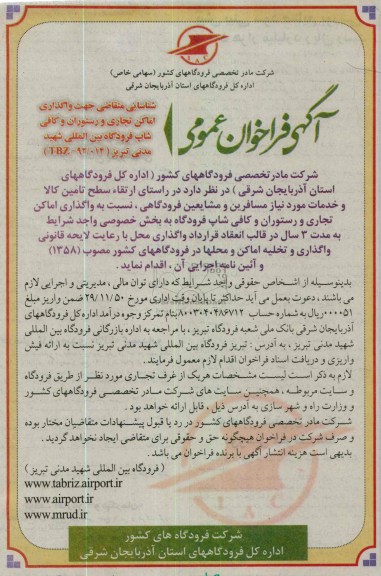 شرکت مادر تخصصی فرودگاههای کشور (سهامی خاص)
اداره کل فرودگاههای استان آذربایجان شرقی
آگهی فراخوان عمومی
شناسایی متقاضی جهت واگذاری
اماکن تجاری و رستوران و کافی
شاپ فرودگاه بین المللی شهید
مدنی تبریز ( TBZ - ۹۲/۰۱۴ )
شرکت مادرتخصصی فرودگاههای کشور ( اداره کل فرودگاههای
استان آذربایجان شرقی ) در نظر دارد در راستای ارتقاء سطح تامین کالا
و خدمات مورد نیاز مسافرین و مشایعین فرودگاهی ، نسبت به واگذاری اماکن
تجاری و رستوران و کافی شاپ فرودگاه به بخش خصوصی واجد شرایط
به مدت ۳ سال در قالب انعقاد قرارداد واگذاری محل با رعایت لایحه قانونی
واگذاری و تخلیه اماکن و محلها در فرودگاههای کشور مصوب (۱۳۵۸)
و آئین نامه اجرایی آن ، اقدام نماید .
بدینوسیله از اشخاص حقوقی واجد شرایط که دارای توان مالی ، مدیریتی و اجرایی لازم
می باشند ، دعوت بعمل می آید حداکثر تا پایان وقت اداری مورخ ضمن واریز مبلغ
ریال به شماره حساب بنام تمرکز وجوه درآمد اداره کل فرودگاههای
آذربایجان شرقی بانک ملی شعبه فرودگاه تبریز ، با مراجعه به اداره بازرگانی فرودگاه بین المللی
شهید مدنی تبریز ، به آدرس : تبریز فرودگاه بین المللی شهید مدنی تبریز نسبت به ارائه فیش
واریزی و دریافت اسناد فراخوان اقدام لازم معمول فرمایند .
لازم به ذکر است لیست مشخصات هریک از غرف تجاری مورد نظر از طریق فرودگاه
و سایت مربوطه ، همچنین سایت های شرکت مادر تخصصی فرودگاههای کشور
و وزارت راه و شهر سازی به آدرس ذیل ، قابل ارائه خواهد بود .
شرکت مادر تخصصی فرودگاههای کشور در رد یا قبول پیشنهادات متقاضیان مختار بوده
و صرف شرکت در فراخوان هیچگونه حق و حقوقی برای متقاضی ایجاد نخواهد گردید .
بدیهی است هزینه انتشار آگهی با برنده فراخوان می باشد .
( فرودگاه بین المللی شهید مدنی تبریز )
www.tabriz.airport.ir
www.airport.ir
www.mrud.ir
شرکت فرودگاه های کشور
اداره کل فرودگاههای استان آذربایجان شرقی